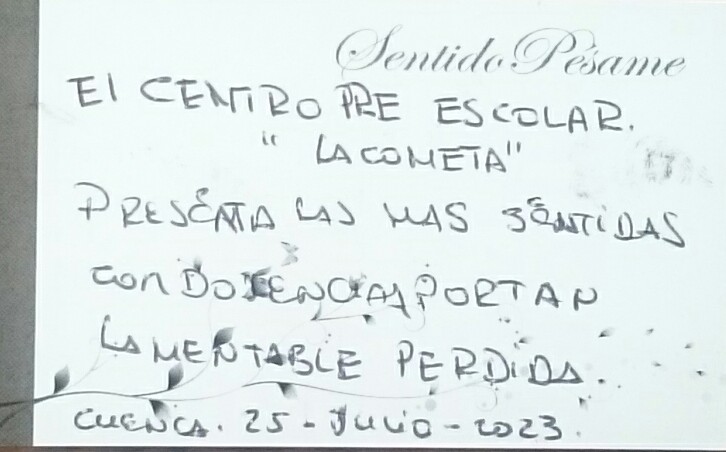 Sentido Pésame
El CENTRO PRE ESCOLAR.
"LA COMETA"
PRESENTA LAS MAS SENTIDAS
conDOLENCIAS PORTAN
LAMENTABLE PERDIDA.
CUENCA. 25 - Julio - 2023.